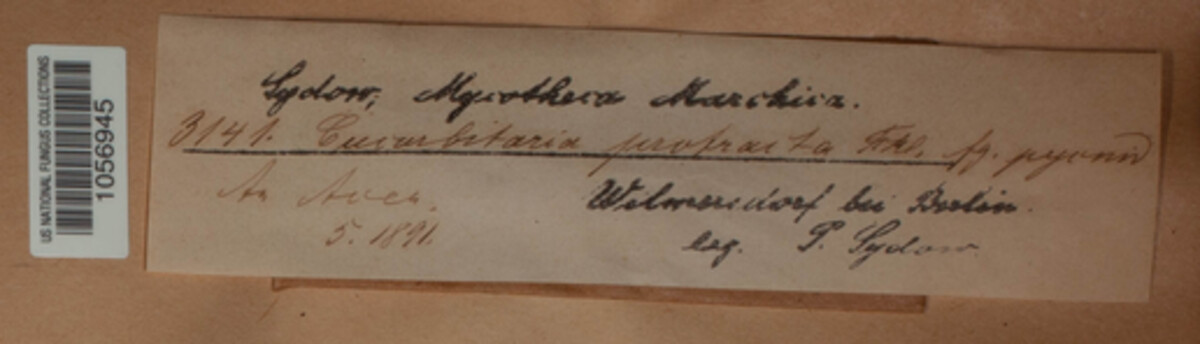 US NATIONAL FUNGUS COLLECTIONS
1056945
Sydow, Mycotheca Marchica.
3141. Cucurbitaria protracta Fkl. fg. pycnid
An Acer.
5. 1891.
Wilmersdorf bei Berlin.
leg. P. Sydow